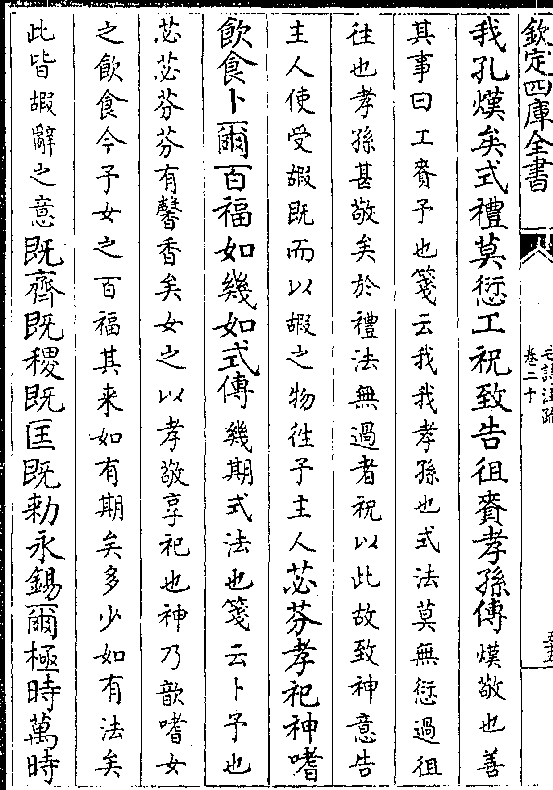 欽定四庫全書
毛詩注疏
卷二十
我孔熯矣式禮莫愆工祝致告徂賚孝孫傳熯敬也善
其事曰工賚予也箋云我我孝孫也式法莫無愆過徂
往也孝孫甚敬矣於禮法無過者祝以此故致神意告
主人使受嘏既而以嘏之物徃予主人苾芬孝祀神嗜
飲食卜爾百福如幾如式傳幾期式法也箋云卜予也
苾苾芬芬有馨香矣女之以孝敬享祀也神乃歆嗜女
之飲食今予女之百福其来如有期矣多少如有法矣
此皆嘏辭之意既齊既稷既匡既勅永錫爾極時萬時